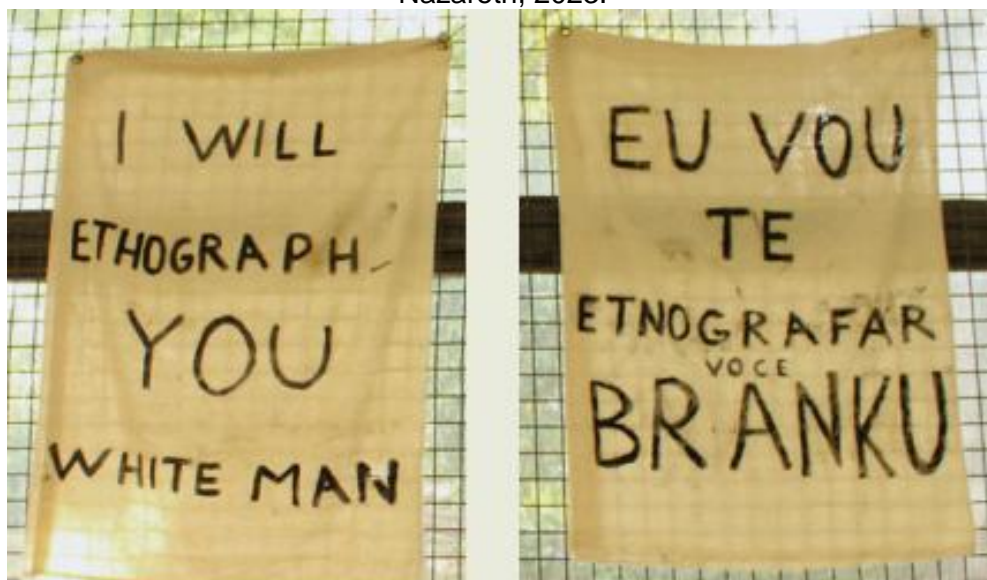 Nazareth, 2023.
I WILL
ETHOGRAPH
YOU
WHITE MAN
EU VOU
TE
ETNOGRAFAR
VOCE
BRANKU